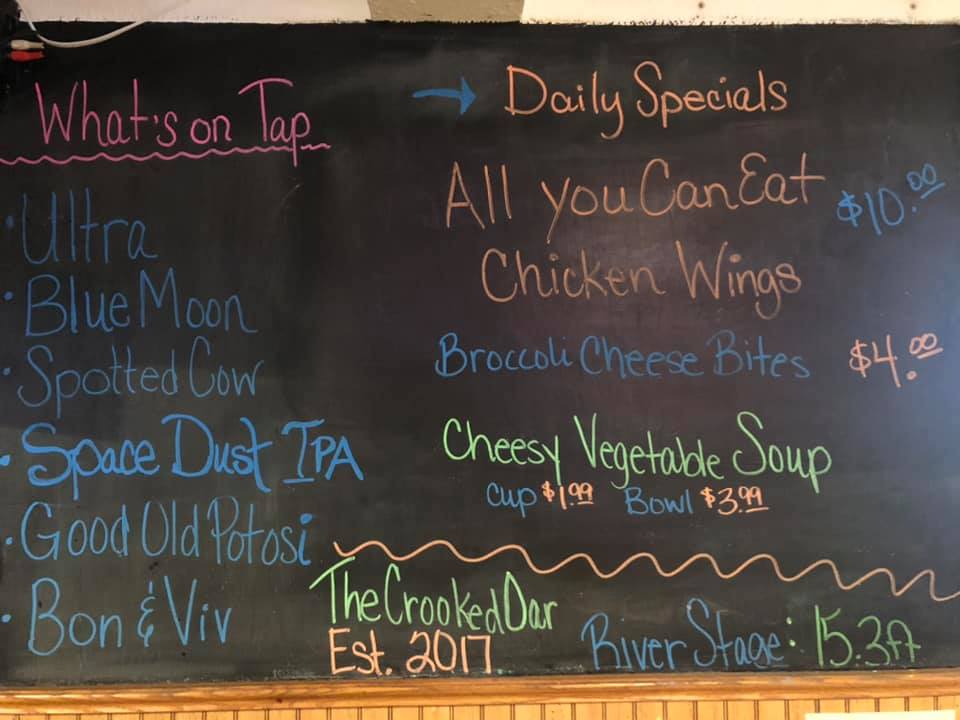 What's on Tap
• Ultra
• Blue Moon
• Spotted Cow
• Space Dust IPA
• Good Old Potosi
• Bon & Viv
→ Daily Specials
All you Can Eat $10.00
Chicken Wings
Broccoli Cheese Bites $4.00
Cheesy Vegetable Soup
Cup $1.99 Bowl $3.99
The Crooked Oar
Est. 2017
River Stage: 15.3ft